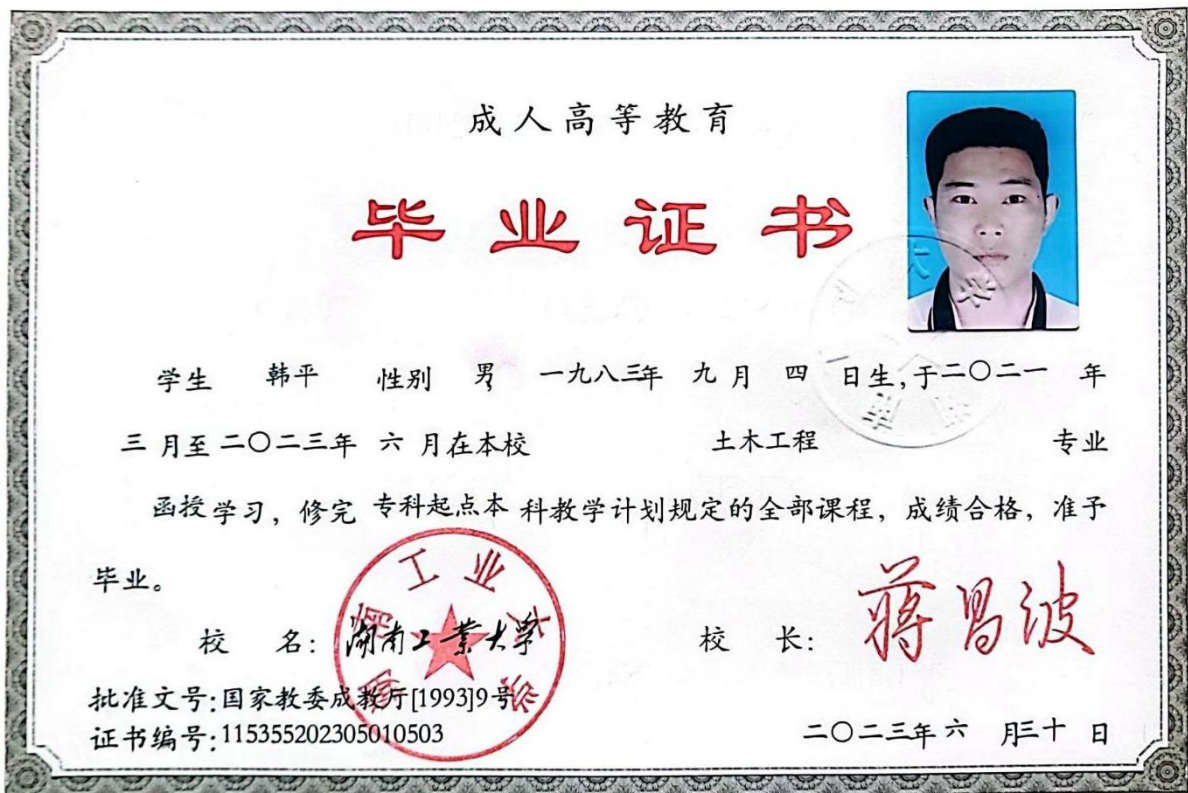 成人高等教育
毕业证书
学生 韩平 性别 男 一九八三年 九月 四 日生,于二〇二一 年
三 月至 二〇二三年 六 月在本校 土木工程 专业
函授 学习, 修完 专科起点本 科教学计划规定的全部课程, 成绩合格, 准予
毕业。
校 名: 湖南工业大学 校 长: 蒋昌波
湖南工业大学
批准文号:国家教委成教厅[1993]9号
证书编号:115355202305010503
二〇二三年 六 月三十 日